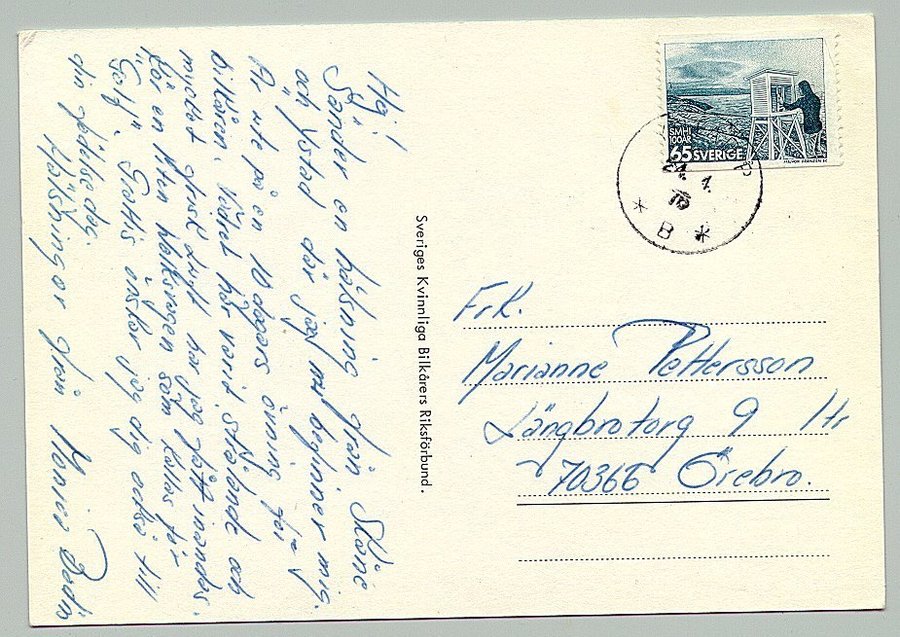 Hej!
Sänder en hälsning från Skåne
och Ystad där jag nu befinner mig.
Är ute på en 10 dagars övning för
bilkåren. Vädret här varit strålande och
mycket frisk luft har jag fått inandas.
Kör en liten Volksvagen som kallas för
"Golf". Grattis önskar jag dig också till
din födelsedag.
Hälsningar från
Sveriges Kvinnliga Bilkårers Riksförbund.
SMHI
100 ÅR
65 SVERIGE
* B *
Frk.
Marianne Pettersson
Längbrotorg 9
70366 Örebro.